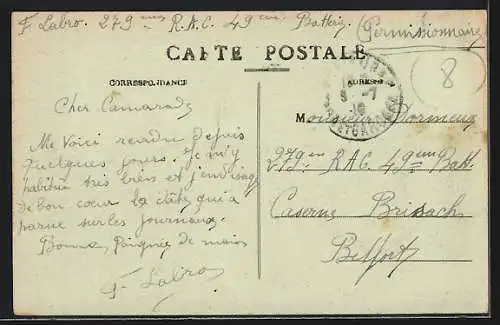 F Labro. 279 ème R.A.C. 49 ème Batterie (Permissionnaire)
CARTE POSTALE
8
CORRESPONDANCE
ADRESSE
Cher Camarade
Me Voici rendu depuis
quelques jours. Je m'y
habitue très bien et
de bon coeur la date qui a
parue sur les journaux.
Bonne Poignée de main
F Labro
Monsieur Dormeux
279 em RAC 49 em Batt.
Caserne Brissach
Belfort